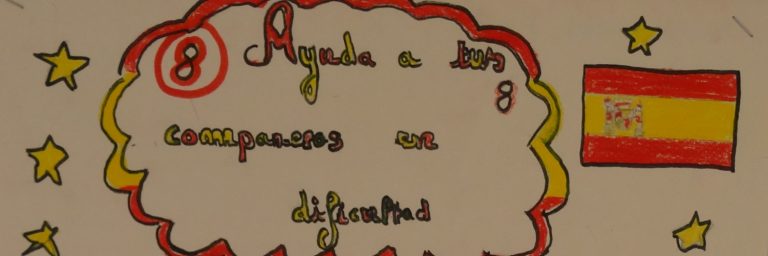 8 Ayuda a tus
8
companeros en
dificultad